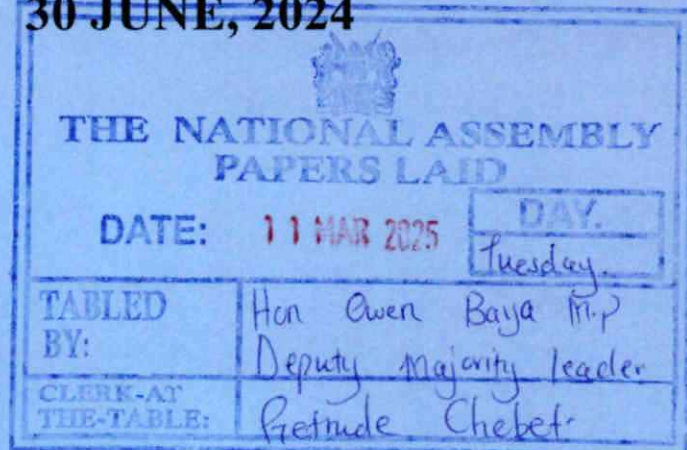 30 JUNE, 2024
THE NATIONAL ASSEMBLY
PAPERS LAID
DATE: 11 MAR 2025
DAY.
Tuesday.
TABLED BY:
Hon Owen Baya M.P
Deputy Majority leader
CLERK-AT THE-TABLE:
Getrude Chebet.